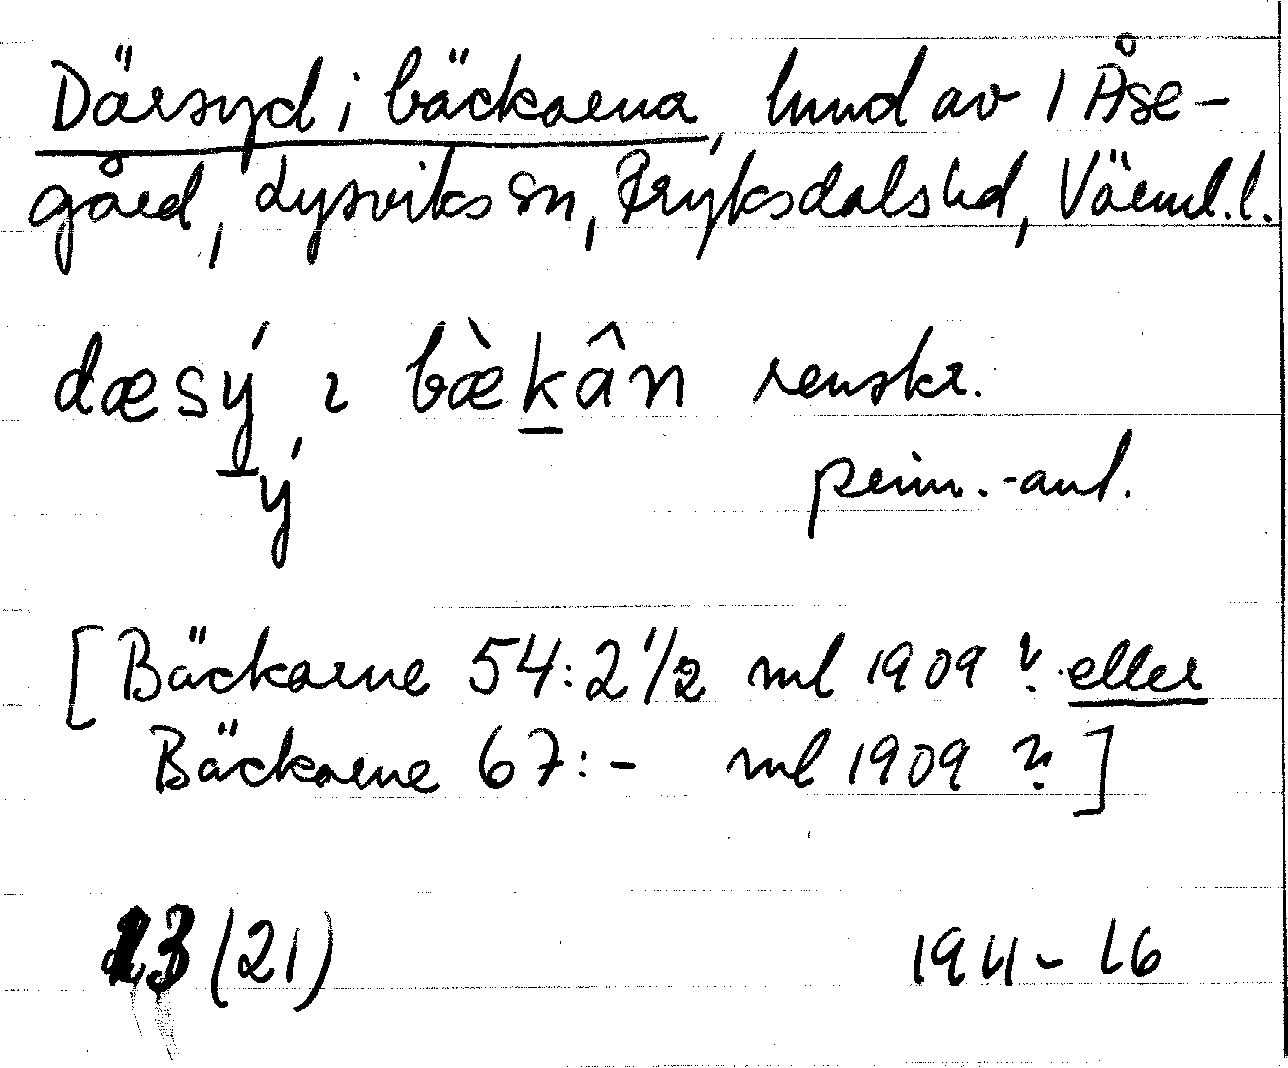 Därsyd i bäckarna, hmd av 1 Åse-
gård, Lysviks sn, Fryksdals hd, Värml. l.
dæsý ı bæ̀kân renskr.
ý prim.-anl.
[Bäckarne 54:2 1/2 ml 1909 ? eller
Bäckarne 67:- ml 1909 ?]
13 (21) 1911-16